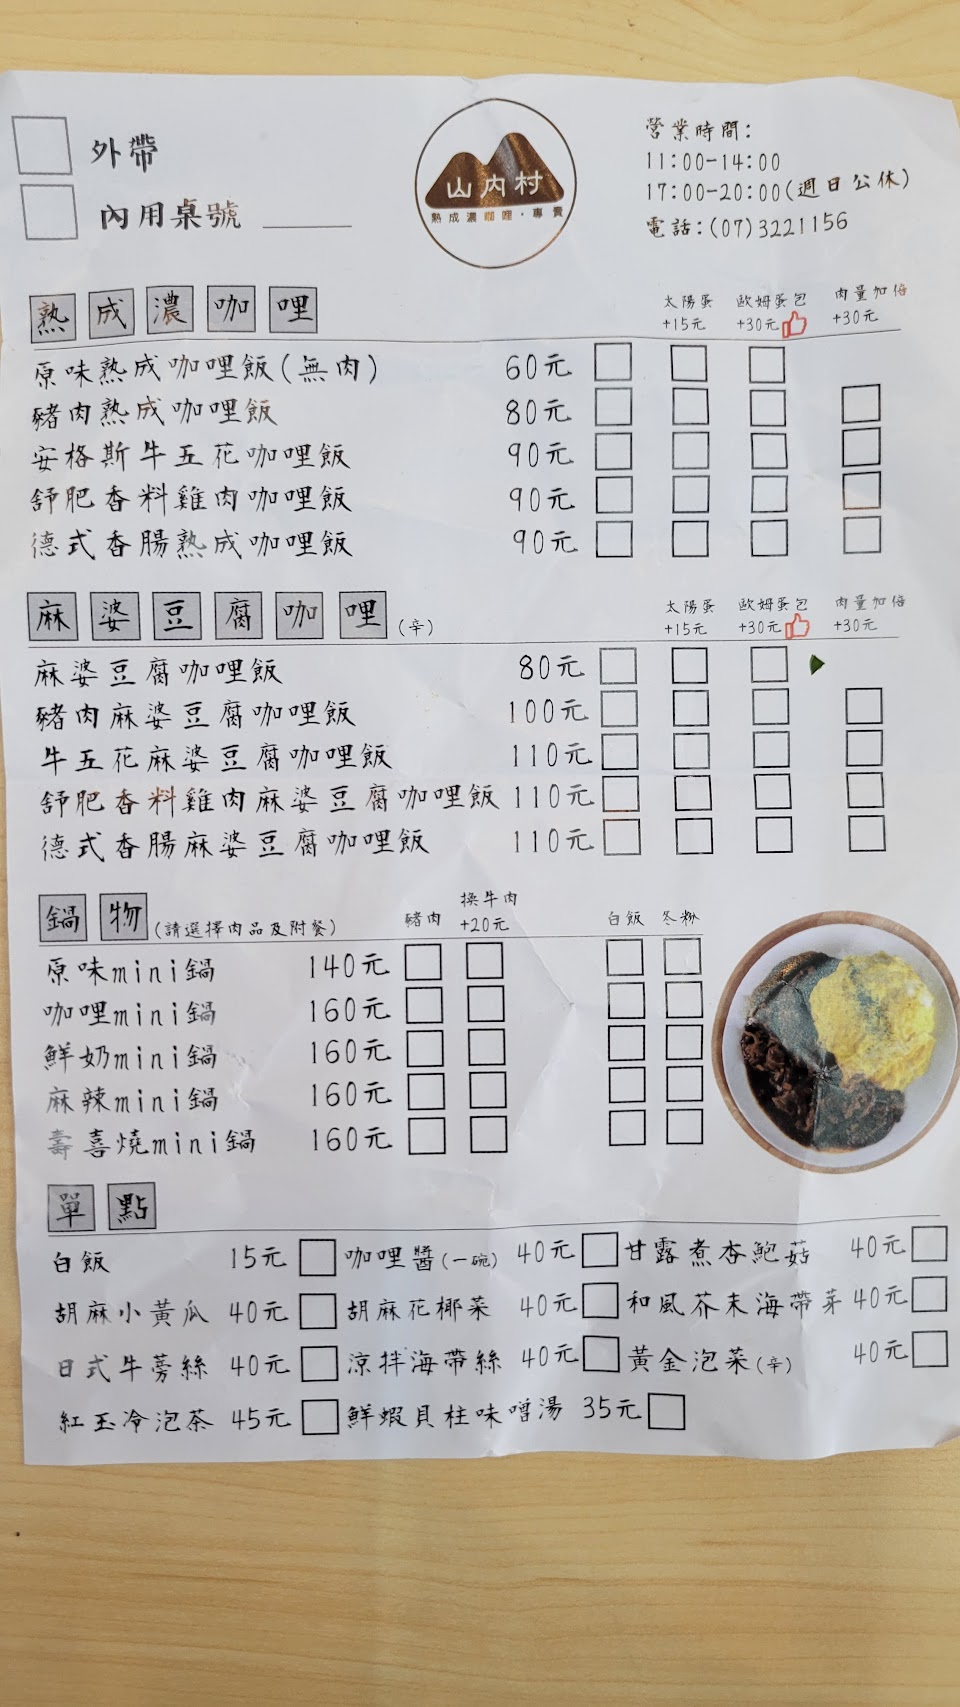 外帶
內用桌號
山內村
熟成濃咖哩·專賣
營業時間:
11:00-14:00
17:00-20:00(週日公休)
電話:(07)3221156
熟成濃咖哩 太陽蛋 歐姆蛋包 肉量加倍
+15元 +30元 +30元
原味熟成咖哩飯(無肉) 60元
豬肉熟成咖哩飯 80元
安格斯牛五花咖哩飯 90元
舒肥香料雞肉咖哩飯 90元
德式香腸熟成咖哩飯 90元
麻婆豆腐咖哩(辛) 太陽蛋 歐姆蛋包 肉量加倍
+15元 +30元 +30元
麻婆豆腐咖哩飯 80元
豬肉麻婆豆腐咖哩飯 100元
牛五花麻婆豆腐咖哩飯 110元
舒肥香料雞肉麻婆豆腐咖哩飯 110元
德式香腸麻婆豆腐咖哩飯 110元
鍋物(請選擇肉品及附餐) 豬肉 換牛肉 白飯 冬粉
+20元
原味mini鍋 140元
咖哩mini鍋 160元
鮮奶mini鍋 160元
麻辣mini鍋 160元
壽喜燒mini鍋 160元
單點
白飯 15元 咖哩醬(一碗) 40元 甘露煮杏鮑菇 40元
胡麻小黃瓜 40元 胡麻花椰菜 40元 和風芥末海帶芽 40元
日式牛蒡絲 40元 涼拌海帶絲 40元 黃金泡菜(辛) 40元
紅玉冷泡茶 45元 鮮蝦貝柱味噌湯 35元